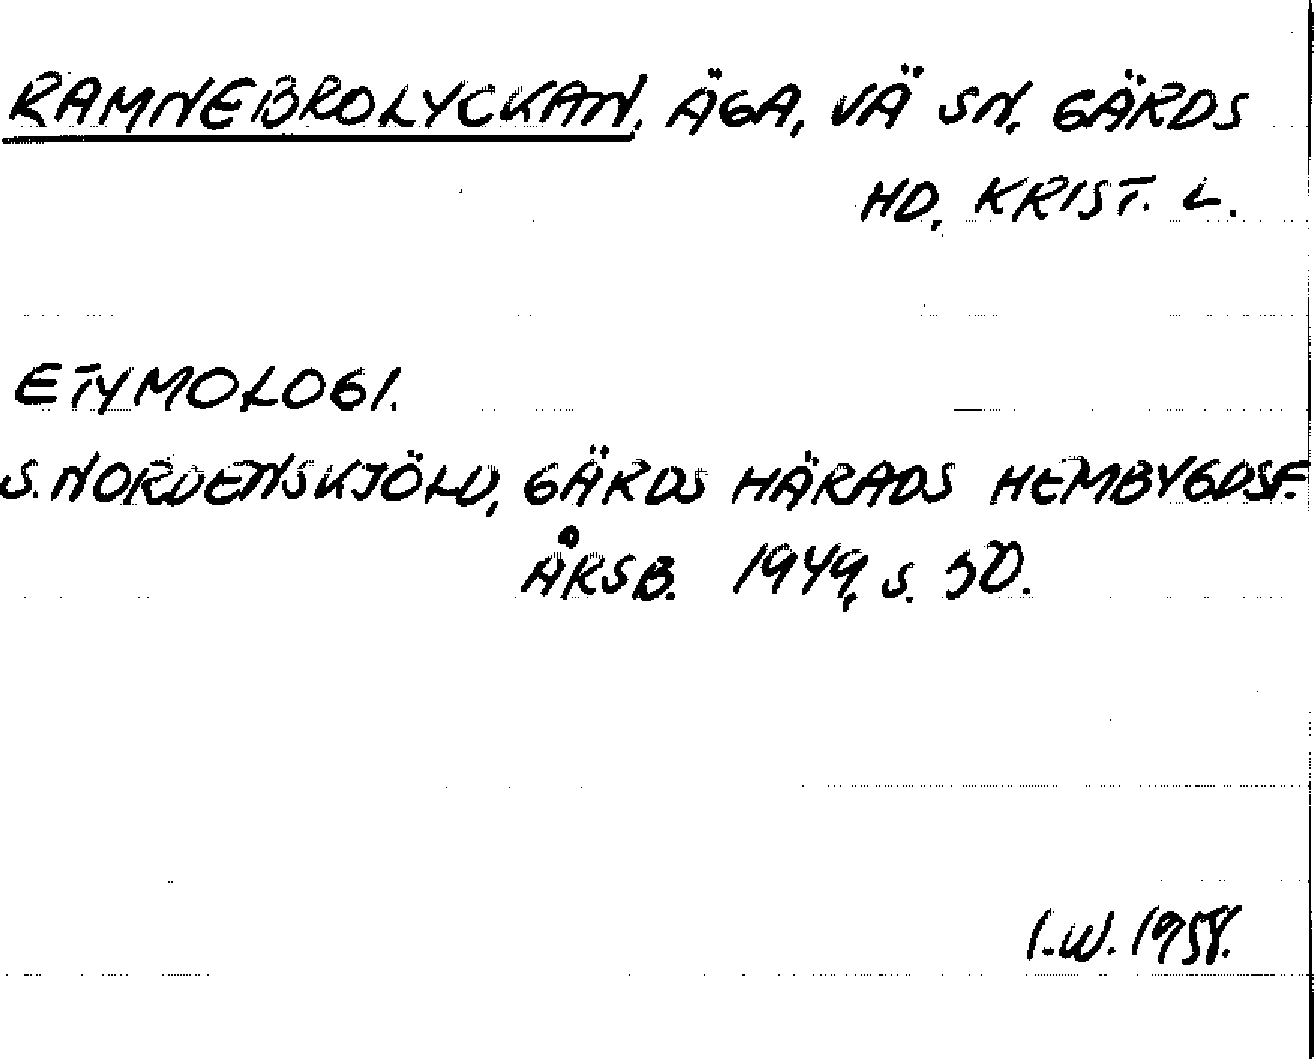 RAMNEBROLYCKAN, ÄGA, VÄ SN, GÄRDS
HD, KRIST. L.
ETYMOLOGI.
S. NORDENSKJÖLD, GÄRDS HÄRADS HEMBYGDSF.
ÅRSB. 1949, S. 50.
I.W. 1958.